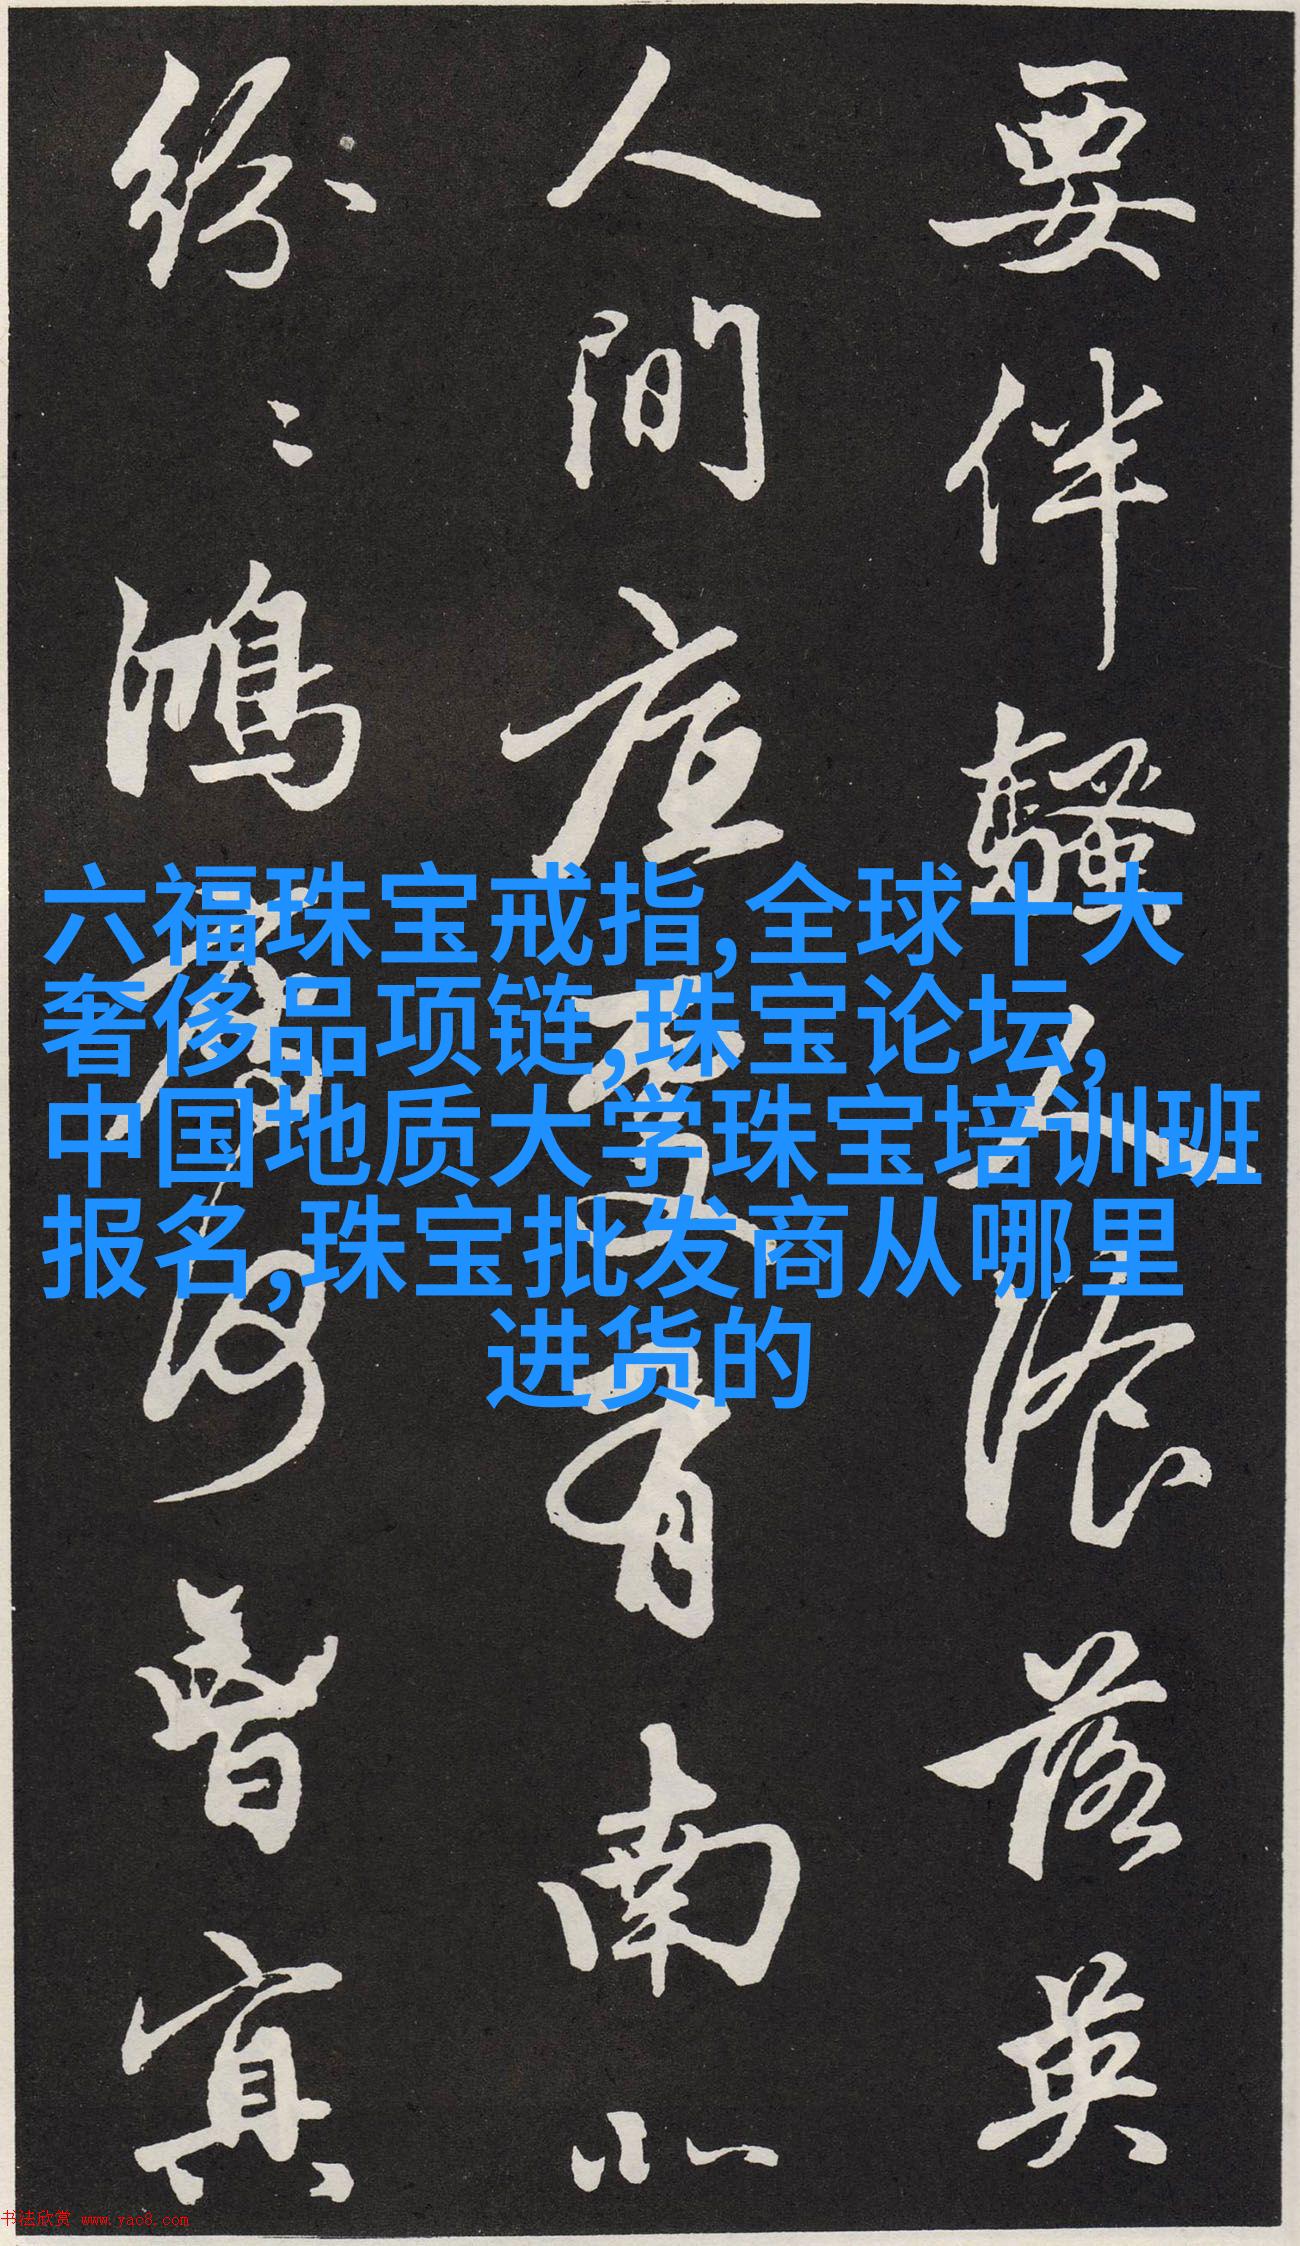 要伴騷人湌落英
人間應更有南北
紛〻鴻鴈何曾冥
六福珠宝戒指,全球十大
奢侈品项链,珠宝论坛,
中国地质大学珠宝培训班
报名,珠宝批发商从哪里
进货的
书法欣赏 www.yac8.com